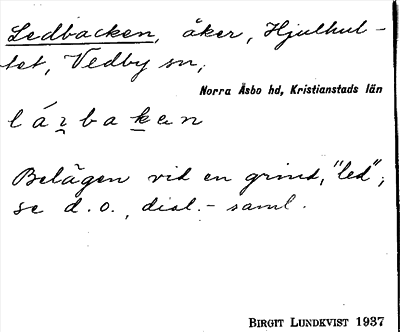 Ledbacken, åker, Hjulhul-
tet, Vedby sn,
Norra Åsbo hd, Kristianstads län
l á ꝛ b a k e n
Belägen vid en grind, "led",
se d. o., dial.- saml.
BIRGIT LUNDKVIST 1937